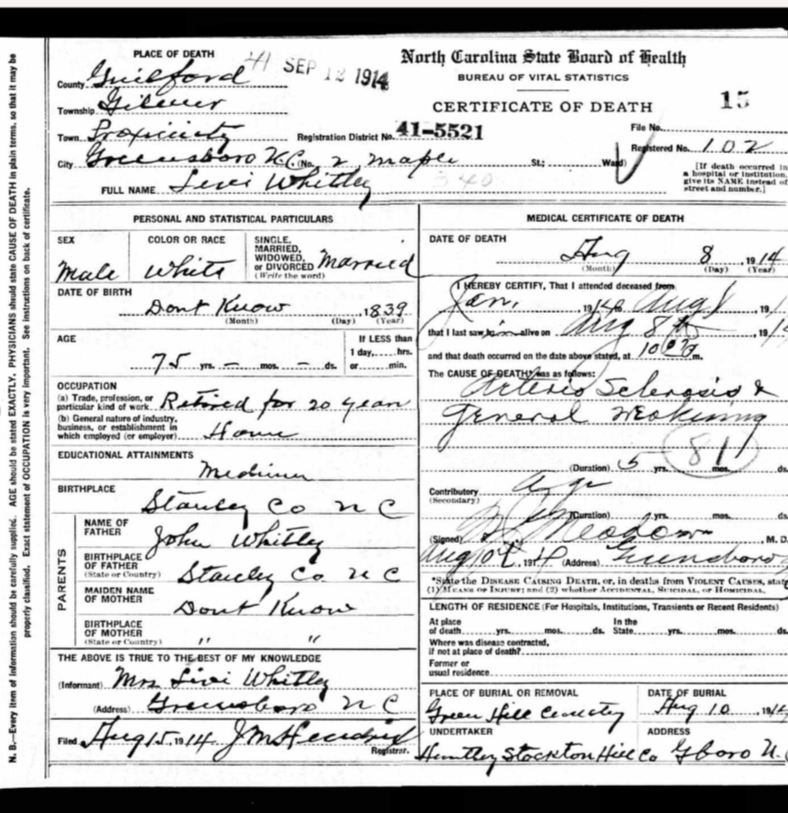 N. B.—Every item of information should be carefully supplied. AGE should be stated EXACTLY. PHYSICIANS should state CAUSE OF DEATH in plain terms, so that it may be
properly classified. Exact statement of OCCUPATION is very important. See instructions on back of certificate.
PLACE OF DEATH
41 SEP 12 1914
North Carolina State Board of Health
BUREAU OF VITAL STATISTICS
CERTIFICATE OF DEATH
15
County Guilford
Township Gilmer
Town Proximity
Registration District No. 41-5521
File No.
Registered No. 102
City Greensboro N.C. (No. 2 Maple St.; Ward)
[If death occurred in
a hospital or institution,
give its NAME instead of
street and number.]
FULL NAME Levi Whitley
PERSONAL AND STATISTICAL PARTICULARS
SEX
Male
COLOR OR RACE
White
SINGLE,
MARRIED,
WIDOWED,
or DIVORCED Married
(Write the word)
DATE OF BIRTH
Dont Know, 1839
(Month) (Day) (Year)
AGE
75 yrs. – mos. – ds.
If LESS than
1 day, hrs.
or min.
OCCUPATION
(a) Trade, profession, or
particular kind of work. Retired for 20 year
(b) General nature of industry,
business, or establishment in
which employed (or employer). Home
EDUCATIONAL ATTAINMENTS
Medium
BIRTHPLACE
Stanley Co N C
PARENTS
NAME OF
FATHER
John Whitley
BIRTHPLACE
OF FATHER
(State or Country) Stanley Co. N C
MAIDEN NAME
OF MOTHER
Dont Know
BIRTHPLACE
OF MOTHER
(State or Country) " "
THE ABOVE IS TRUE TO THE BEST OF MY KNOWLEDGE
(Informant) Mrs Levi Whitley
(Address) Greensboro N C
Filed Aug 15, 1914
Registrar.
MEDICAL CERTIFICATE OF DEATH
DATE OF DEATH
Aug 8, 1914
(Month) (Day) (Year)
I HEREBY CERTIFY, That I attended deceased from
Jan, 191 Aug 8, 191
that I last saw him alive on Aug 8th, 191
and that death occurred on the date above stated, at 10 m.
The CAUSE OF DEATH was as follows:
Arterio Sclerosis &
General
81
(Duration) 5 yrs. mos. ds.
Contributory Age
(Secondary)
(Duration) yrs. mos. ds.
(Signed) M. D.
Aug 10, 1914 (Address) Greensboro
*State the DISEASE CAUSING DEATH, or, in deaths from VIOLENT CAUSES, state
(1) MEANS OF INJURY; and (2) whether ACCIDENTAL, SUICIDAL, OR HOMICIDAL.
LENGTH OF RESIDENCE (For Hospitals, Institutions, Transients or Recent Residents)
At place
of death yrs. mos. ds.
In the
State yrs. mos. ds.
Where was disease contracted,
if not at place of death?
Former or
usual residence
PLACE OF BURIAL OR REMOVAL
Green Hill Cemetery
DATE OF BURIAL
Aug 10, 191
UNDERTAKER
Huntley Stockton Hill Co
ADDRESS
Gboro N.